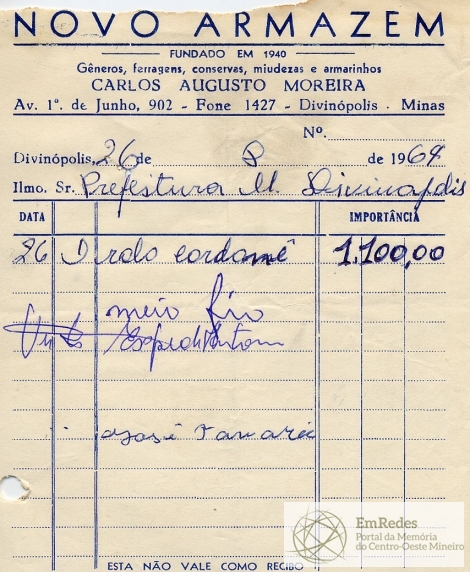 NOVO ARMAZEM
FUNDADO EM 1940
Gêneros, ferragens, conservas, miudezas e armarinhos
CARLOS AUGUSTO MOREIRA
Av. 1º. de Junho, 902 - Fone 1427 - Divinópolis - Minas
Nº.
Divinópolis, 26 de 8 de 1964
Ilmo. Sr. Prefeitura M. Divinopolis
DATA IMPORTÂNCIA
26 1 rolo cordamê 1.100,00
meio fio
José
ESTA NÃO VALE COMO RECIBO
EmRedes
Portal da Memória
do Centro-Oeste Mineiro